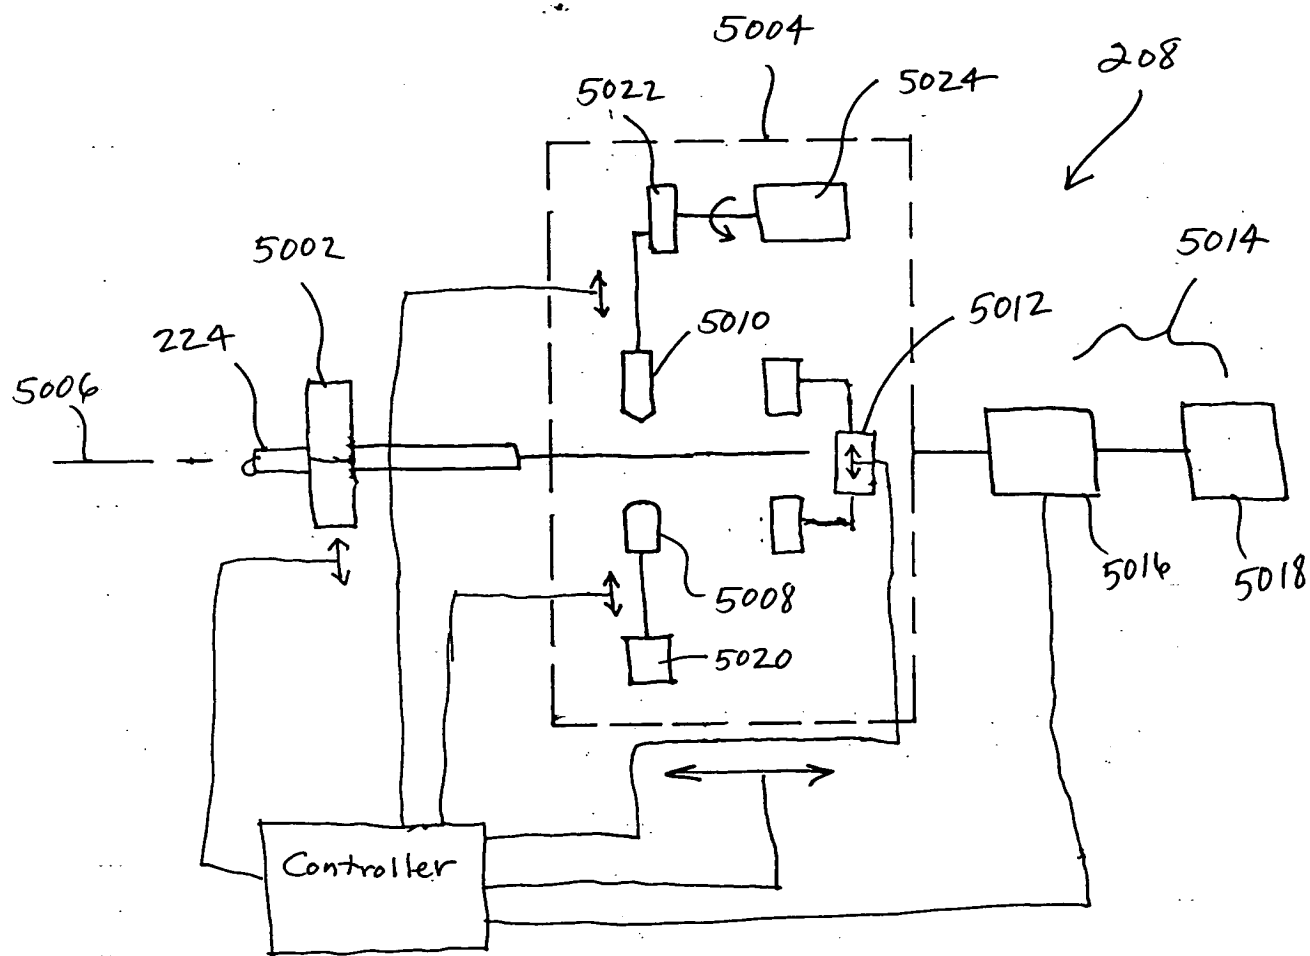 5004
208
5022
5024
5002
5014
5010
5012
224
5006
5008
5016
5018
5020
Controller